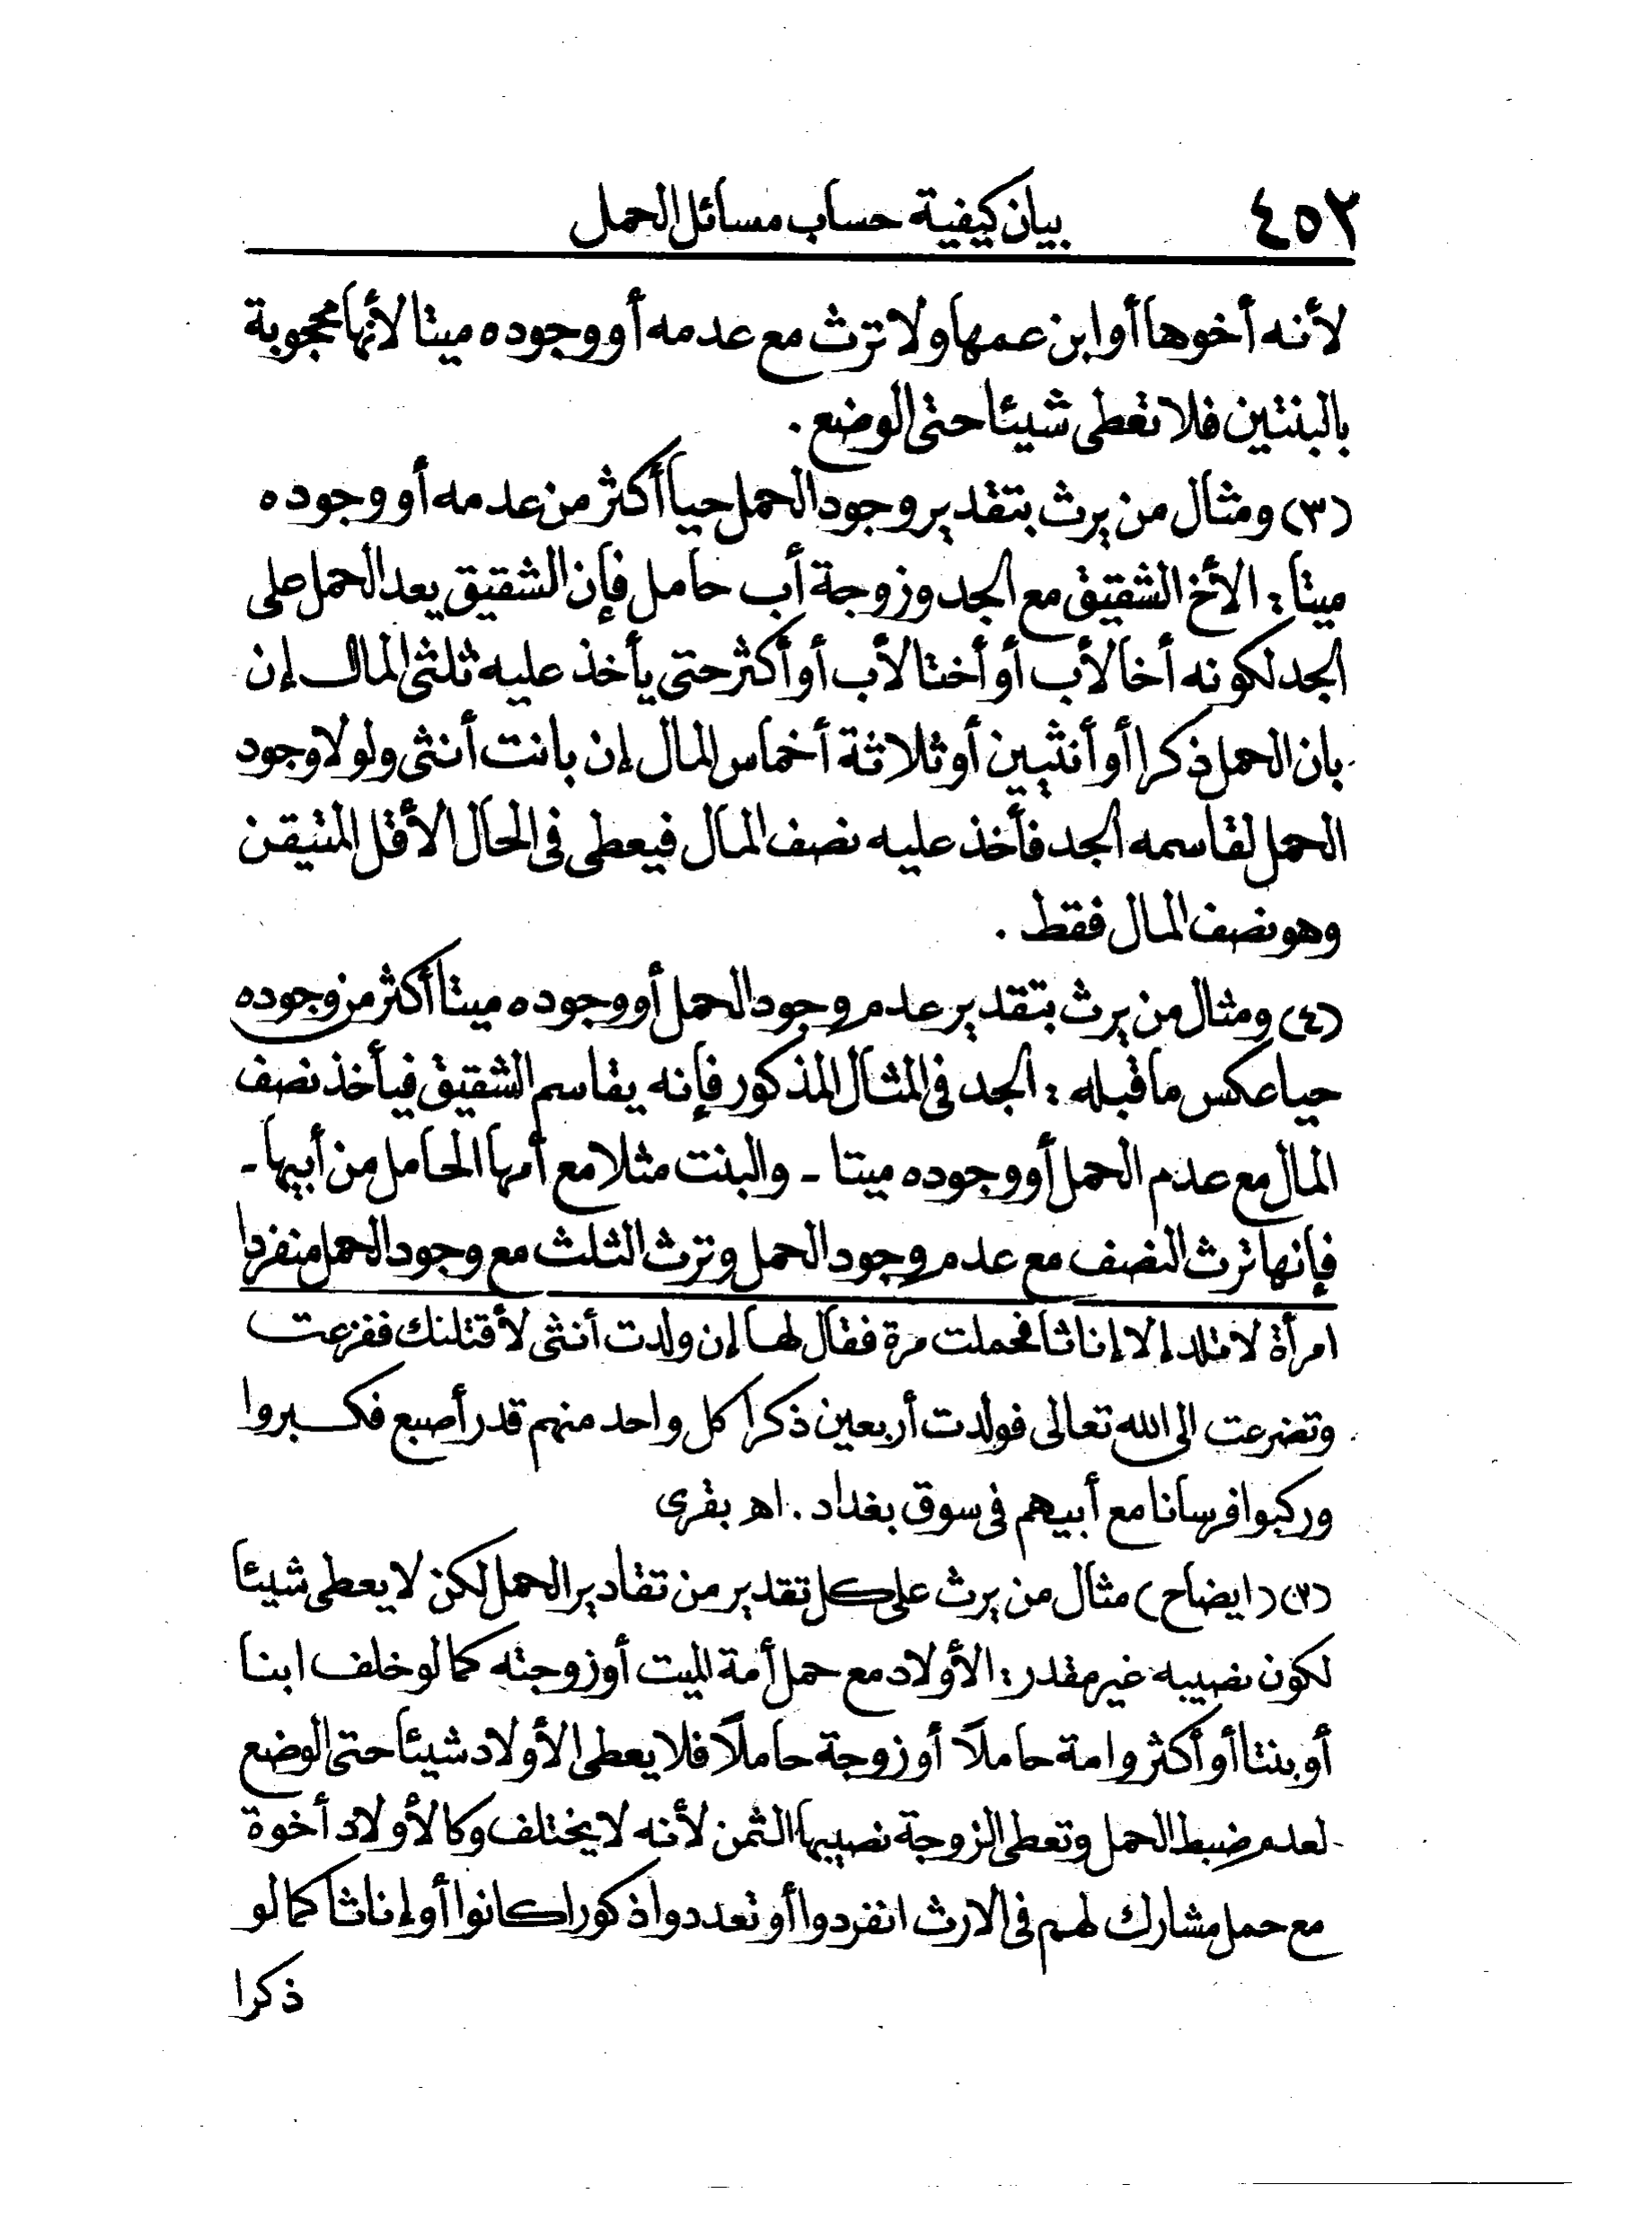 ٤٥٢ بيان كيفية حساب مسائل الحمل
لأنه أخوها أو ابن عمها ولا ترث مع عدمه أو وجوده ميتا لأنها محجوبة
بالبنتين فلا تعطى شيئا حتى الوضع .
(٣) ومثال من يرث بتقدير وجود الحمل حيا أكثر من عدمه أو وجوده
ميتا : الأخ الشقيق مع الجد وزوجة أب حامل فإن الشقيق يعد الحمل على
الجد لكونه أخا لأب أو أختا لأب أو أكثر حتى يأخذ عليه ثلثى المال إن
بان الحمل ذكرا أو أنثيين أو ثلاثة أخماس المال إن بانت أنثى ولولا وجود
الحمل لقاسمه الجد فأخذ عليه نصف المال فيعطى فى الحال الأقل المتيقن
وهو نصف المال فقط .
(٤) ومثال من يرث بتقدير عدم وجود الحمل أو وجوده ميتا أكثر من وجوده
حيا عكس ما قبله : الجد فى المثال المذكور فإنه يقاسم الشقيق فيأخذ نصف
المال مع عدم الحمل أو وجوده ميتا - والبنت مثلا مع أمها الحامل من أبيها -
فإنها ترث النصف مع عدم وجود الحمل وترث الثلث مع وجود الحمل منفردا
امرأة لا تلد إلا إناثا فحملت مرة فقال لها إن ولدت أنثى لأقتلنك ففزعت
وتضرعت الى الله تعالى فولدت أربعين ذكرا كل واحد منهم قدر أصبع فكبروا
وركبوا فرسانا مع أبيهم فى سوق بغداد . اهـ بقرى
(٢) (ايضاح) مثال من يرث على كل تقدير من تقادير الحمل لكن لا يعطى شيئا
لكون نصيبه غير مقدر : الأولاد مع حمل أمة الميت أو زوجته كما لو خلف ابنا
أو بنتا أو أكثر وامة حاملاً أو زوجة حاملاً فلا يعطى الأولاد شيئا حتى الوضع
لعدم ضبط الحمل وتعطى الزوجة نصيبها الثمن لأنه لا يختلف وكالأولاد أخوة
مع حمل مشارك لهم فى الارث انفردوا أو تعددوا ذكورا كانوا أو إناثا كما لو
ذكرا